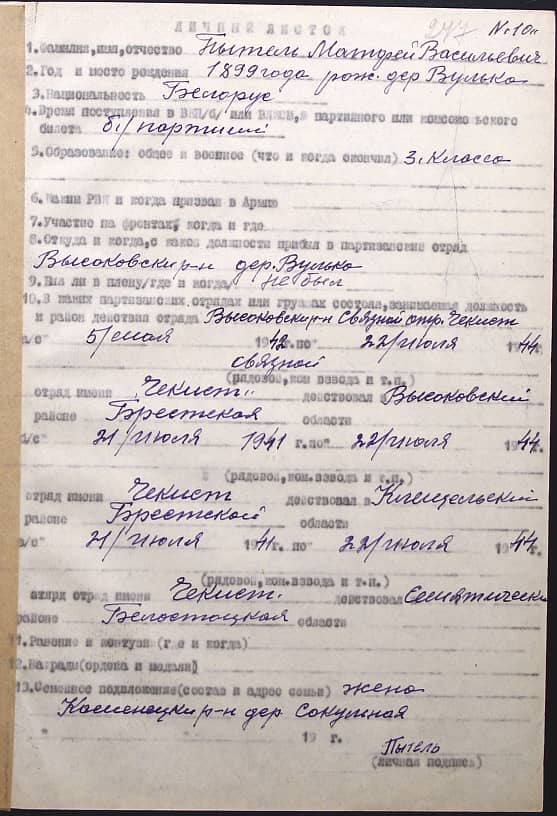 247 № 10п
ЛИЧНЫЙ ЛИСТОК
1.Фамилия,имя,отчество Пытель Матфей Васильевич
2.Год и место рождения 1899 года рож. дер Вулька
3.Национальность Белорус
4.Время поступления в ВКП/б/ или ВЛКСМ, № партийного или комсомольского
билета б/партийный
5.Образование: общее и военное (что и когда окончил) 3. Класса
6.Каким РВК и когда призван в Армию
7.Участие на фронтах, когда и где
8.Откуда и когда,с какой должности прибыл в партизанский отряд
Высоковский р-н дер. Вулька
9.Был ли в плену/где и когда/ не был
10.В каких партизанских отрядах или группах состоял,занимаемая должность
и район действия отряда Высоковский р-н Связной отр. Чекист
"с" 5/мая 1942 г.по" 22/июля 1944г.
связной
(рядовой,ком взвода и т.п.)
отряд имени "Чекист" действовал Высоковский
районе Брестская области
"с" 21/июля 1941 г.по" 22/июля 1944г.
(рядовой,ком.взвода и т.п.)
отряд имени Чекист действовал Клещельский
районе Брестской области
"с" 21/июля 1941г. по" 22/июля 1944г.
(рядовой,ком.взвода и т.п.)
отряд имени Чекист. действовал Семятически
районе Белостоцкая области
11.Ранение и контузия(где и когда)
12.Награды(ордена и медали)
13.Семейное положение(состав и адрес семьи) жена
Каменецки р-н дер Сокумная
" 19 г.
Пытель
(личная подпись)